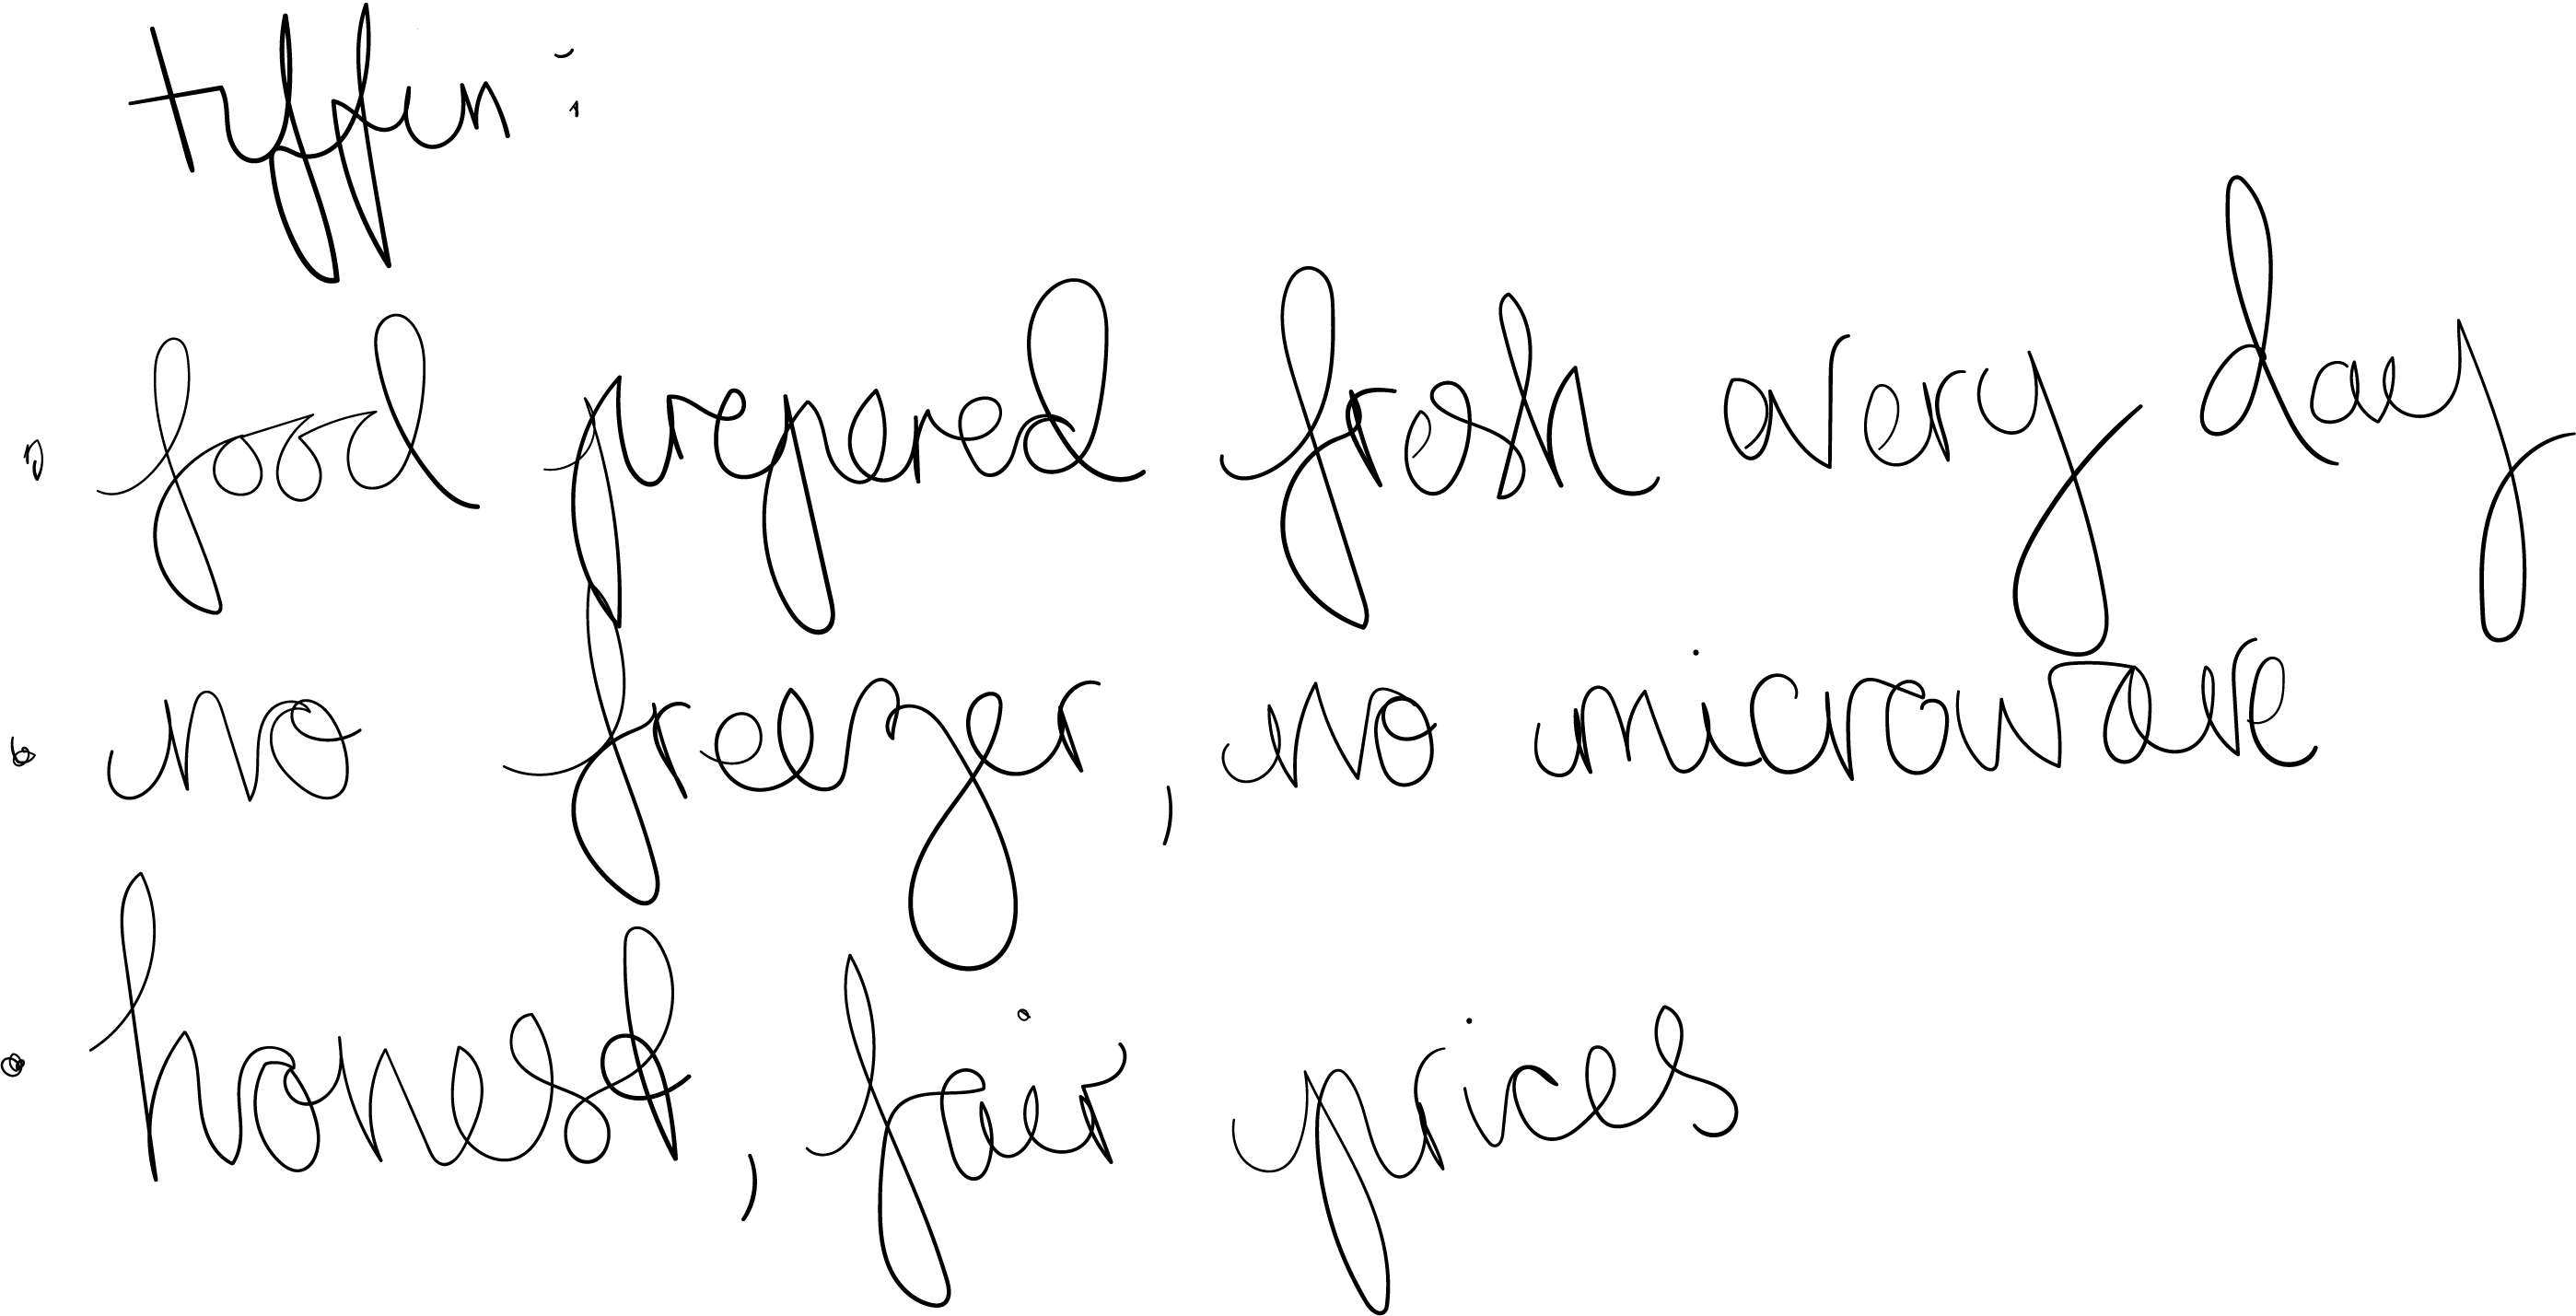 tiffin:
• food prepered fresh every day
• no freezer, no microwave
• honest, fair prices